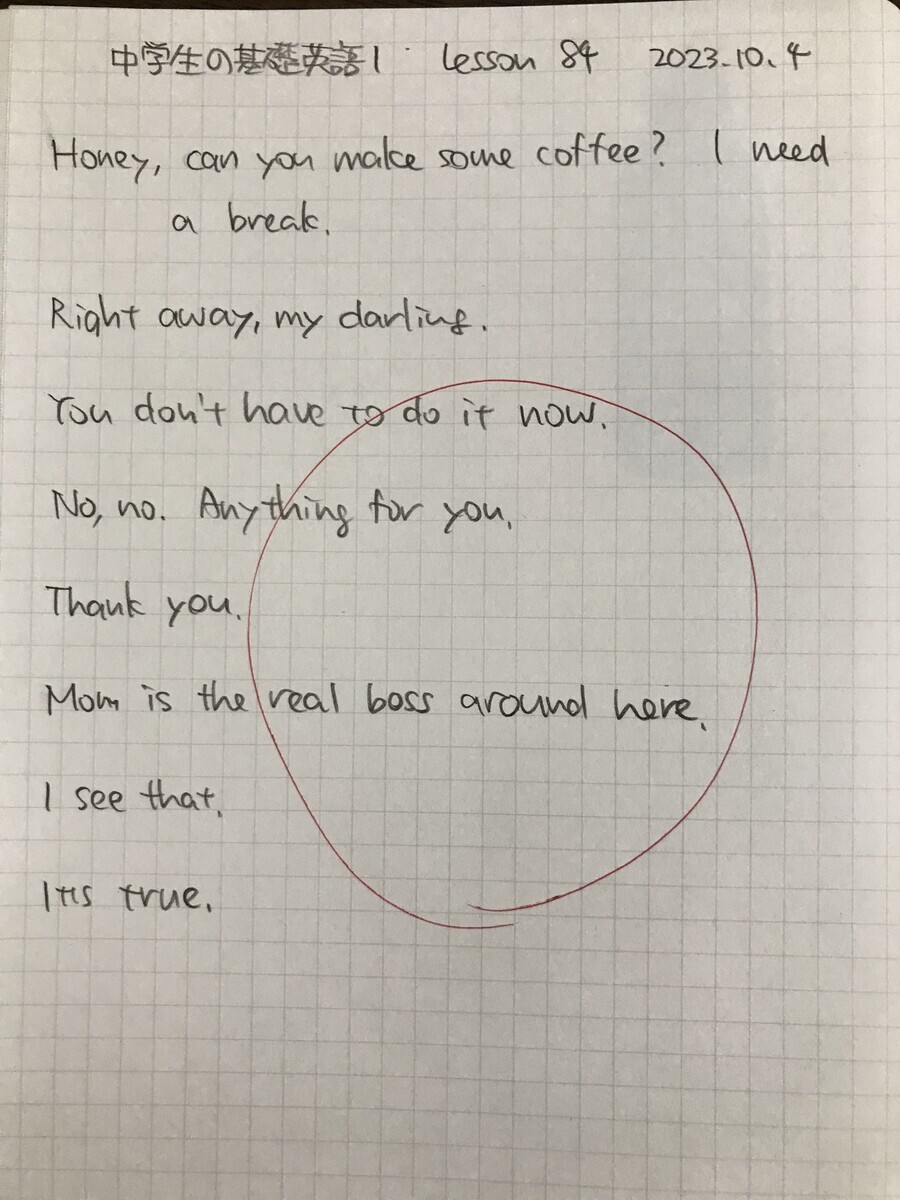 中学生の基礎英語1 Lesson 84 2023.10.4
Honey, can you make some coffee? I need
a break.
Right away, my darling.
You don't have to do it now.
No, no. Anything for you.
Thank you.
Mom is the real boss around here.
I see that.
It's true.